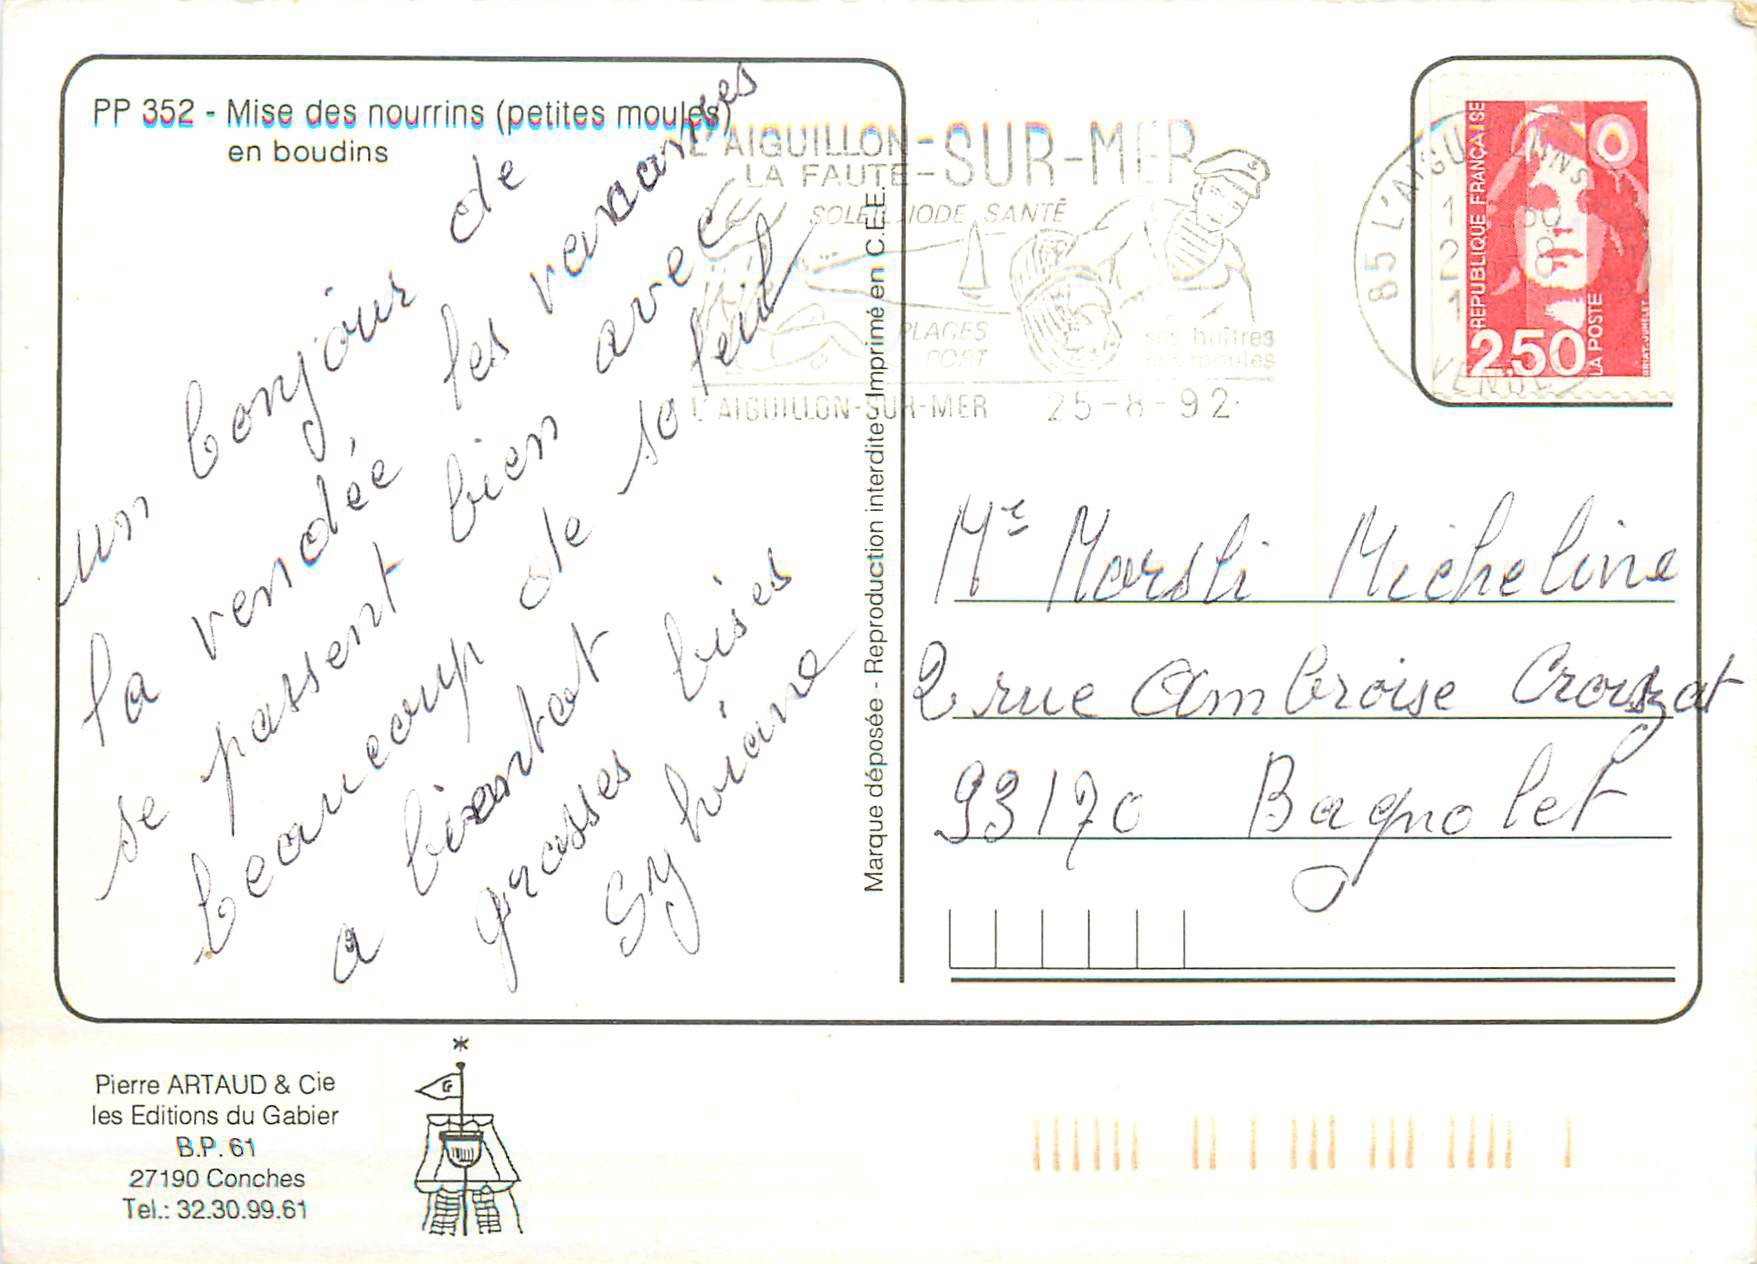 PP 352 - Mise des nourrins (petites moules)
en boudins
un bonjour de
la vendée les vacances
se passent bien avec
beaucoup de soleil
a bientot
grosses bises
Sylviane
Marque déposée - Reproduction interdite Imprimé en C.E.E.
L'AIGUILLON-SUR-MER
LA FAUTE-
SOLEIL IODE SANTÉ
PLAGES
PORT
ses huîtres
ses moules
L'AIGUILLON-SUR-MER 25-8-92
85 L'AIGU
VENDEE
RÉPUBLIQUE FRANÇAISE
0
2,50
LA POSTE
BRIAT-JUMELET
Me Morsli Micheline
2 rue Ambroise Croizat
93170 Bagnolet
Pierre ARTAUD & Cie
les Editions du Gabier
B.P. 61
27190 Conches
Tel.: 32.30.99.61
G